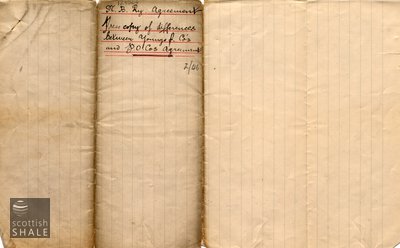 N. B. Ry. Agreement
copy of differences
between Youngs Co's
and P. O Co's Agreement
2/06
scottish
SHALE